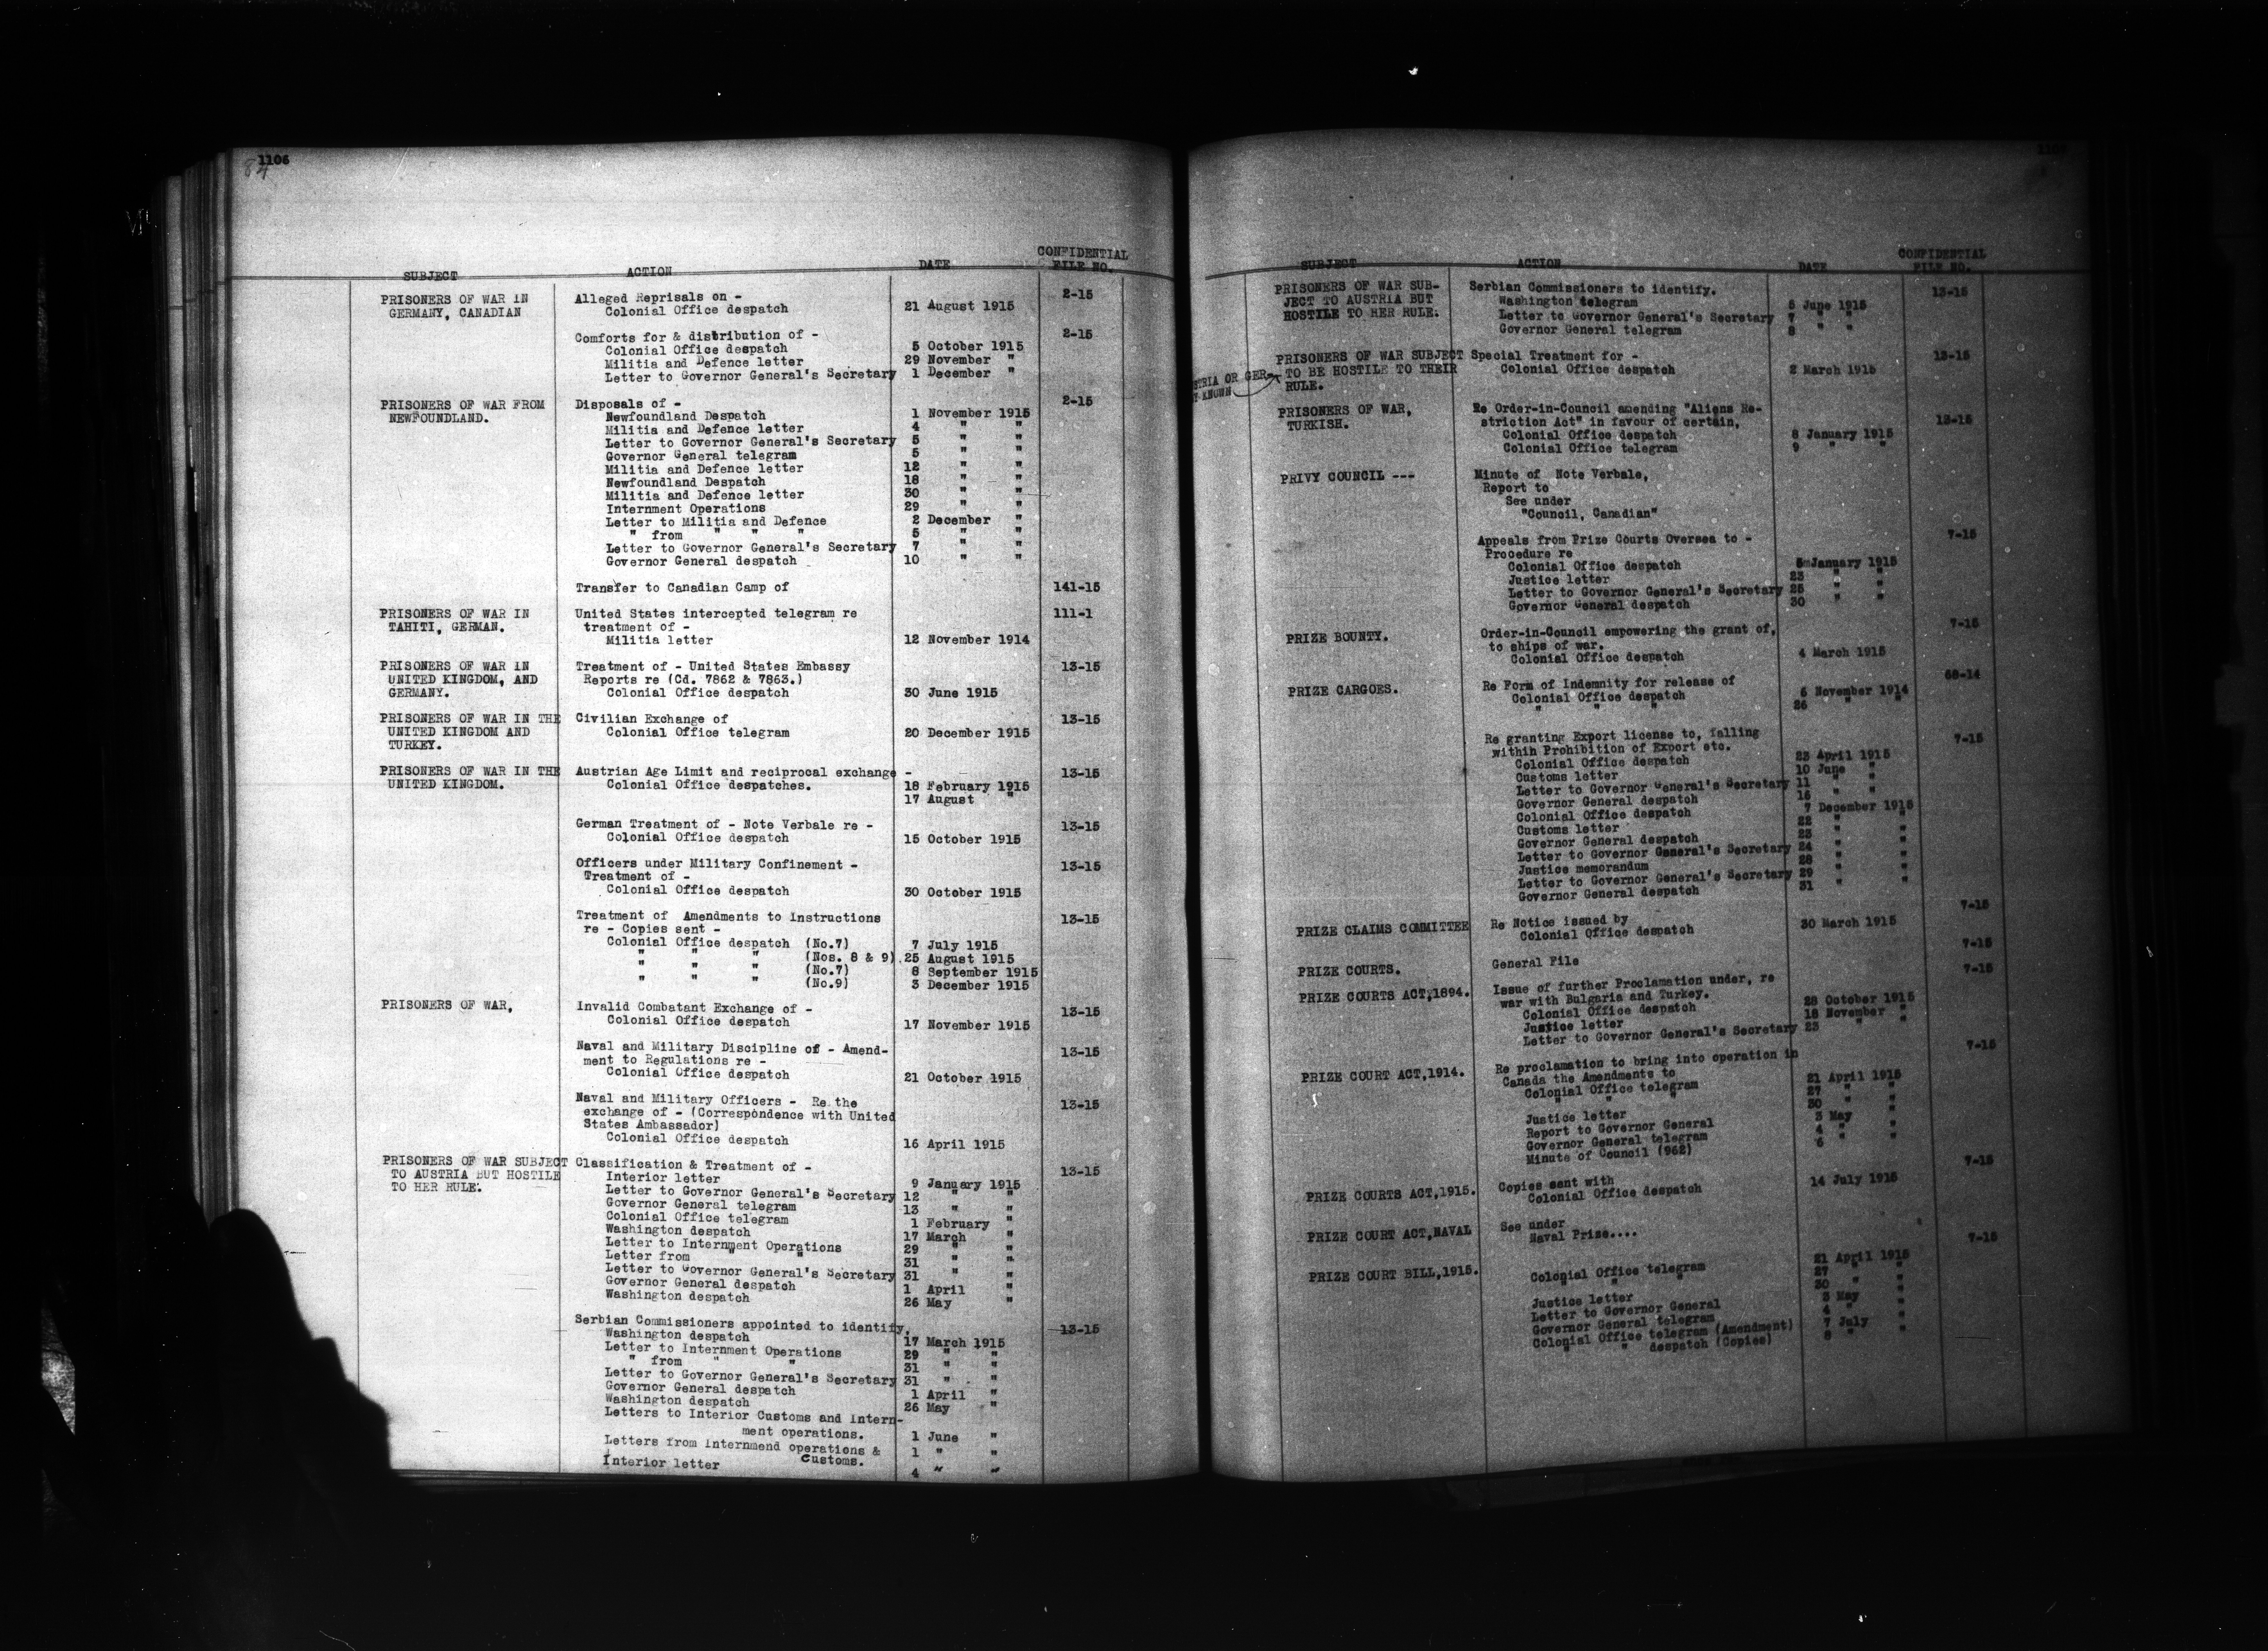 1106
84
SUBJECT ACTION DATE CONFIDENTIAL FILE NO.
PRISONERS OF WAR IN Alleged Reprisals on - 2-15
GERMANY, CANADIAN Colonial Office despatch 21 August 1915
Comforts for & distribution of - 2-15
Colonial Office despatch 5 October 1915
Militia and Defence letter 29 November "
Letter to Governor General's Secretary 1 December "
PRISONERS OF WAR FROM Disposals of - 2-15
NEWFOUNDLAND. Newfoundland Despatch 1 November 1915
Militia and Defence letter 4 " "
Letter to Governor General's Secretary 5 " "
Governor General telegram 5 " "
Militia and Defence letter 12 " "
Newfoundland Despatch 18 " "
Militia and Defence letter 30 " "
Internment Operations 29 " "
Letter to Militia and Defence 2 December "
" from " " " 5 " "
Letter to Governor General's Secretary 7 " "
Governor General despatch 10 " "
Transfer to Canadian Camp of 141-15
PRISONERS OF WAR IN United States intercepted telegram re 111-1
TAHITI, GERMAN. treatment of -
Militia letter 12 November 1914
PRISONERS OF WAR IN Treatment of - United States Embassy 13-15
UNITED KINGDOM, AND Reports re (Cd. 7862 & 7863.)
GERMANY. Colonial Office despatch 30 June 1915
PRISONERS OF WAR IN THE Civilian Exchange of 13-15
UNITED KINGDOM AND Colonial Office telegram 20 December 1915
TURKEY.
PRISONERS OF WAR IN THE Austrian Age Limit and reciprocal exchange - 13-15
UNITED KINGDOM. Colonial Office despatches. 18 February 1915
17 August "
German Treatment of - Note Verbale re - 13-15
Colonial Office despatch 15 October 1915
Officers under Military Confinement - 13-15
Treatment of -
Colonial Office despatch 30 October 1915
Treatment of Amendments to Instructions 13-15
re - Copies sent -
Colonial Office despatch (No.7) 7 July 1915
" " " (Nos. 8 & 9) 25 August 1915
" " " (No.7) 8 September 1915
" " " (No.9) 3 December 1915
PRISONERS OF WAR, Invalid Combatant Exchange of - 13-15
Colonial Office despatch 17 November 1915
Naval and Military Discipline of - Amend- 13-15
ment to Regulations re -
Colonial Office despatch 21 October 1915
Naval and Military Officers - Re the 13-15
exchange of - (Correspondence with United
States Ambassador)
Colonial Office despatch 16 April 1915
PRISONERS OF WAR SUBJECT Classification & Treatment of - 13-15
TO AUSTRIA BUT HOSTILE Interior letter 9 January 1915
TO HER RULE. Letter to Governor General's Secretary 12 " "
Governor General telegram 13 " "
Colonial Office telegram 1 February "
Washington despatch 17 March "
Letter to Internment Operations 29 " "
Letter from " " 31 " "
Letter to Governor General's Secretary 31 " "
Governor General despatch 1 April "
Washington despatch 26 May "
Serbian Commissioners appointed to identify, 13-15
Washington despatch 17 March 1915
Letter to Internment Operations 29 " "
" from " " 31 " "
Letter to Governor General's Secretary 31 " "
Governor General despatch 1 April "
Washington despatch 26 May "
Letters to Interior Customs and Intern-
ment operations. 1 June "
Letters from Internmend operations & 1 " "
Customs.
Interior letter 4 " "
SUBJECT ACTION DATE CONFIDENTIAL FILE NO.
PRISONERS OF WAR SUB- Serbian Commissioners to identify. 13-15
JECT TO AUSTRIA BUT Washington telegram 5 June 1915
HOSTILE TO HER RULE. Letter to Governor General's Secretary 7 " "
Governor General telegram 8 " "
PRISONERS OF WAR SUBJECT Special Treatment for - 13-15
STRIA OR GER- TO BE HOSTILE TO THEIR Colonial Office despatch 2 March 1915
KNOWN RULE.
PRISONERS OF WAR, Re Order-in-Council amending "Aliens Re- 13-15
TURKISH. striction Act" in favour of certain,
Colonial Office despatch 8 January 1915
Colonial Office telegram 9 " "
PRIVY COUNCIL --- Minute of Note Verbale,
Report to
See under
"Council, Canadian"
Appeals from Prize Courts Oversea to - 7-15
Procedure re
Colonial Office despatch 5 January 1915
Justice letter 23 " "
Letter to Governor General's Secretary 25 " "
Governor General despatch 30 " "
PRIZE BOUNTY. Order-in-Council empowering the grant of, 7-15
to ships of war.
Colonial Office despatch 4 March 1915
PRIZE CARGOES. Re Form of Indemnity for release of 68-14
Colonial Office despatch 6 November 1914
" " " 26 " "
Re granting Export license to, falling 7-15
within Prohibition of Export etc.
Colonial Office despatch 23 April 1915
Customs letter 10 June "
Letter to Governor General's Secretary 11 " "
Governor General despatch 15 " "
Colonial Office despatch 7 December 1915
Customs letter 22 " "
Governor General despatch 23 " "
Letter to Governor General's Secretary 24 " "
Justice memorandum 28 " "
Letter to Governor General's Secretary 29 " "
Governor General despatch 31 " "
PRIZE CLAIMS COMMITTEE Re Notice issued by 7-15
Colonial Office despatch 30 March 1915
PRIZE COURTS. General File 7-15
PRIZE COURTS ACT,1894. Issue of further Proclamation under, re 7-15
war with Bulgaria and Turkey.
Colonial Office despatch 28 October 1915
Justice letter 18 November "
Letter to Governor General's Secretary 23 " "
PRIZE COURT ACT,1914. Re proclamation to bring into operation in 7-15
Canada the Amendments to
Colonial Office telegram 21 April 1915
" " " 27 " "
Justice letter 30 " "
Report to Governor General 3 May "
Governor General telegram 4 " "
Minute of Council (962) 6 " "
PRIZE COURTS ACT,1915. Copies sent with 7-15
Colonial Office despatch 14 July 1915
PRIZE COURT ACT,NAVAL See under
Naval Prize....
PRIZE COURT BILL,1915. 7-15
Colonial Office telegram 21 April 1915
" " " 27 " "
Justice letter 30 " "
Letter to Governor General 3 May "
Governor General telegram 4 " "
Colonial Office telegram (Amendment) 7 July "
" " despatch (Copies) 8 " "